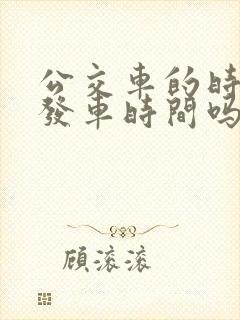 公交車的時
發車時間嗎
顧滚滚